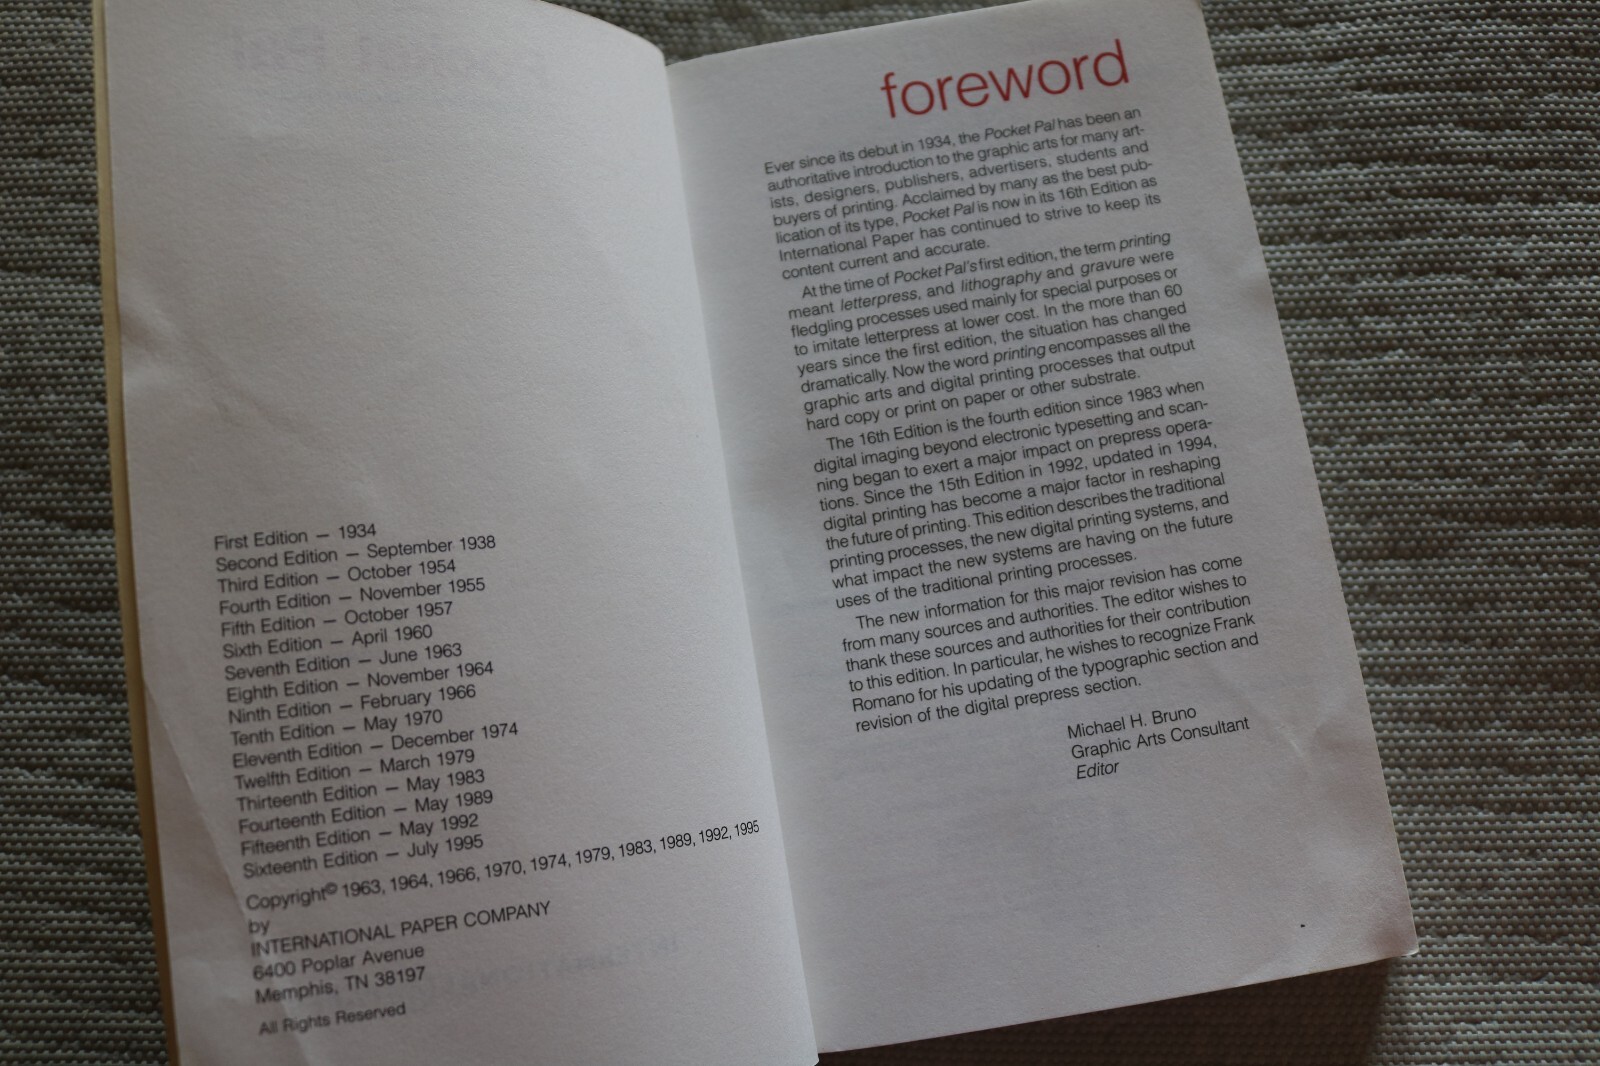 First Edition — 1934
Second Edition — September 1938
Third Edition — October 1954
Fourth Edition — November 1955
Fifth Edition — October 1957
Sixth Edition — April 1960
Seventh Edition — June 1963
Eighth Edition — November 1964
Ninth Edition — February 1966
Tenth Edition — May 1970
Eleventh Edition — December 1974
Twelfth Edition — March 1979
Thirteenth Edition — May 1983
Fourteenth Edition — May 1989
Fifteenth Edition — May 1992
Sixteenth Edition — July 1995
Copyright© 1963, 1964, 1966, 1970, 1974, 1979, 1983, 1989, 1992, 1995
by
INTERNATIONAL PAPER COMPANY
6400 Poplar Avenue
Memphis, TN 38197
All Rights Reserved
foreword
Ever since its debut in 1934, the Pocket Pal has been an
authoritative introduction to the graphic arts for many art-
ists, designers, publishers, advertisers, students and
buyers of printing. Acclaimed by many as the best pub-
lication of its type, Pocket Pal is now in its 16th Edition as
International Paper has continued to strive to keep its
content current and accurate.
At the time of Pocket Pal's first edition, the term printing
meant letterpress, and lithography and gravure were
fledgling processes used mainly for special purposes or
to imitate letterpress at lower cost. In the more than 60
years since the first edition, the situation has changed
dramatically. Now the word printing encompasses all the
graphic arts and digital printing processes that output
hard copy or print on paper or other substrate.
The 16th Edition is the fourth edition since 1983 when
digital imaging beyond electronic typesetting and scan-
ning began to exert a major impact on prepress opera-
tions. Since the 15th Edition in 1992, updated in 1994,
digital printing has become a major factor in reshaping
the future of printing. This edition describes the traditional
printing processes, the new digital printing systems, and
what impact the new systems are having on the future
uses of the traditional printing processes.
The new information for this major revision has come
from many sources and authorities. The editor wishes to
thank these sources and authorities for their contribution
to this edition. In particular, he wishes to recognize Frank
Romano for his updating of the typographic section and
revision of the digital prepress section.
Michael H. Bruno
Graphic Arts Consultant
Editor